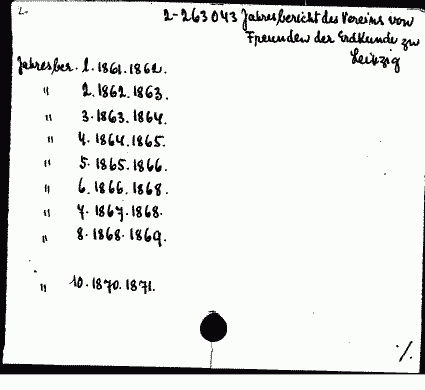 2.
2-263043 Jahresbericht des Vereins von
Freunden der Erdkunde zu
Leipzig
Jahresber. 1. 1861. 1862.
" 2. 1862. 1863.
" 3. 1863. 1864.
" 4. 1864. 1865.
" 5. 1865. 1866.
" 6. 1866. 1868.
" 7. 1867. 1868.
" 8. 1868. 1869.
" 10. 1870. 1871.
./.